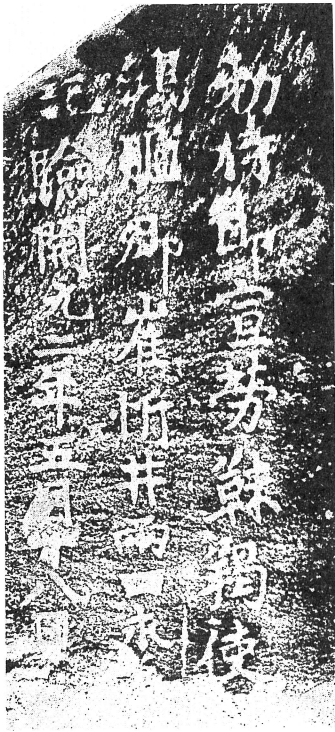 勅持節宣勞靺羯使
鴻臚卿崔忻井兩口永
記驗開元二年五月十八日